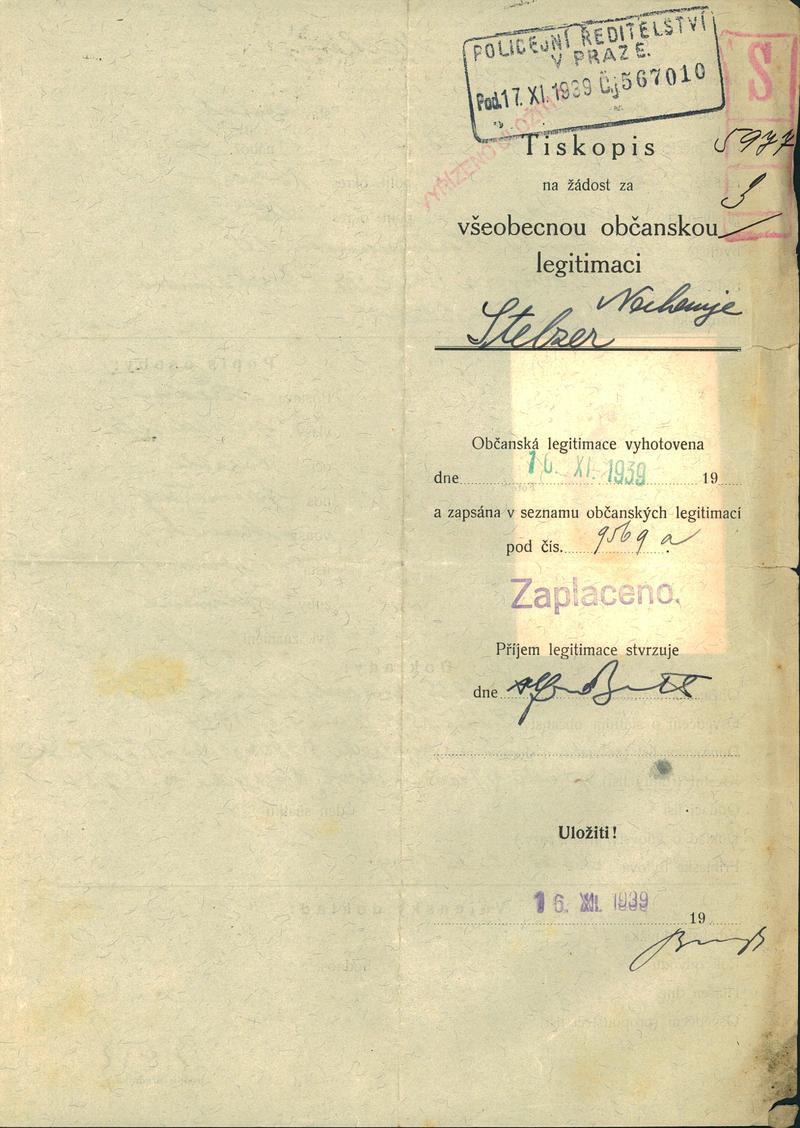 POLICEJNÍ ŘEDITELSTVÍ
V PRAZE.
Pod. 17. XI. 1939 Čj 567010
S
5977
Tiskopis
na žádost za
všeobecnou občanskou
legitimaci
Stelzer Nechemje
Občanská legitimace vyhotovena
dne 16. XI. 1939 19
a zapsána v seznamu občanských legitimací
pod čís. 9569 a
Zaplaceno.
Příjem legitimace stvrzuje
dne
Uložiti!
16. XII. 1939
19